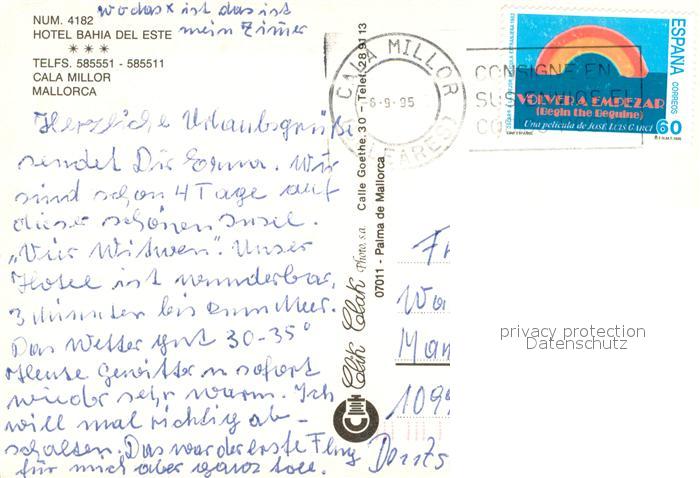 wo das x ist das ist
mein Zimer
NUM. 4182
HOTEL BAHIA DEL ESTE
★ ★ ★
TELFS. 585551 - 585511
CALA MILLOR
MALLORCA
Herzliche Urlaubsgrüße
sendet Dir Erna. Wir
sind schon 4 Tage auf
dieser schönen Insel.
„Vier Witwen". Unser
Hotel ist wunderbar,
3 Minuten bis zum Meer.
Das Wetter gut 30-35°
Heute Gewitter u sofort
wieder sehr warm. Ich
will mal richtig ab-
schalten. Das war der erste Flug
für mich aber ganz toll.
Clik Clak Photo, s.a. Calle Goethe, 30 - Telef. 28 91 13
07011 - Palma de Mallorca
CALA MILLOR
-6-9-95
(BALEARES)
CONSIGNE EN
SUS ENVIOS EL
ESPAÑA
CORREOS
60
VOLVER A EMPEZAR
(Begin the Beguine)
Una película de JOSÉ LUIS GARCI
CINE ESPAÑOL
Fr
Wa
Man
109
Deuts
privacy protection
Datenschutz